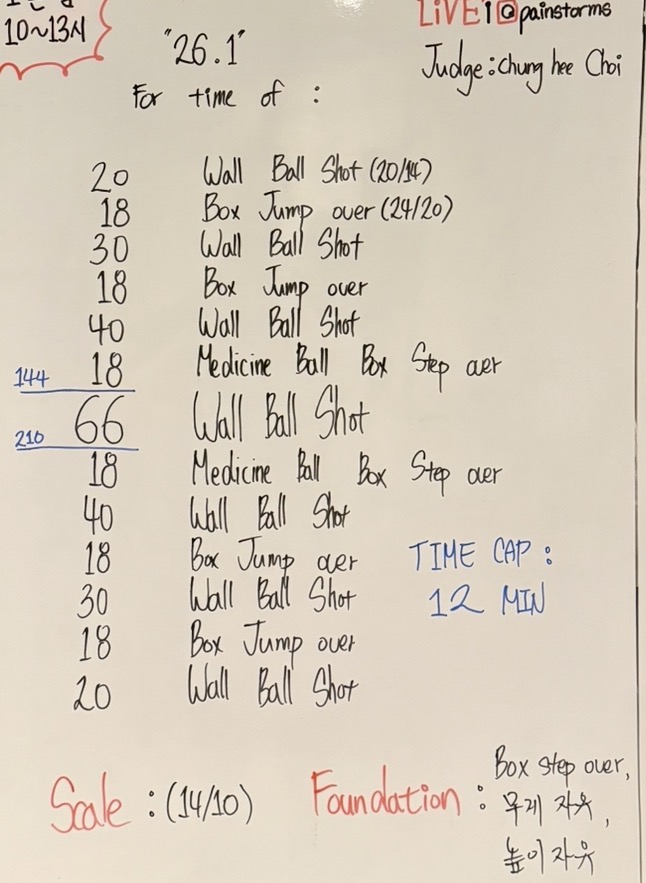 10~13시
LIVE 10 painstorms
"26.1"
Judge: Chung hee Choi
For time of :
20 Wall Ball Shot (20/14)
18 Box Jump over (24/20)
30 Wall Ball Shot
18 Box Jump over
40 Wall Ball Shot
144 18 Medicine Ball Box Step over
66 Wall Ball Shot
210
18 Medicine Ball Box Step over
40 Wall Ball Shot
18 Box Jump over
TIME CAP :
30 Wall Ball Shot
12 MIN
18 Box Jump over
20 Wall Ball Shot
Scale : (14/10)
Foundation : Box step over,
무게 자유,
높이 자유